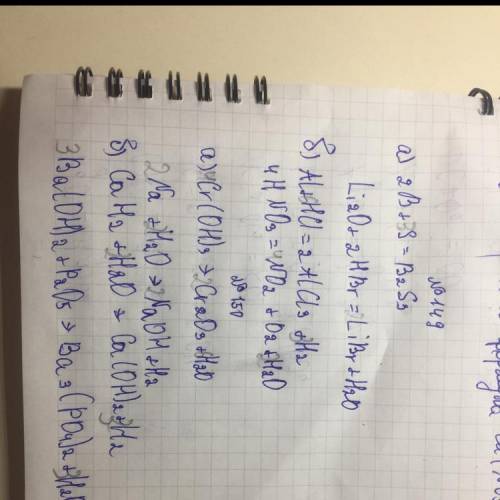 № 149
а) 2B + 3S = B2S3
Li2O + 2HBr = LiBr + H2O
б) Al + HCl = 2AlCl3 + H2
4HNO3 = 4NO2 + O2 + 2H2O
№ 150
а) Cr(OH)3 → Cr2O3 + H2O
2Na + H2O → NaOH + H2
б) CaH2 + H2O → Ca(OH)2 + H2
3Ba(OH)2 + P2O5 → Ba3(PO4)2 + 3H2O